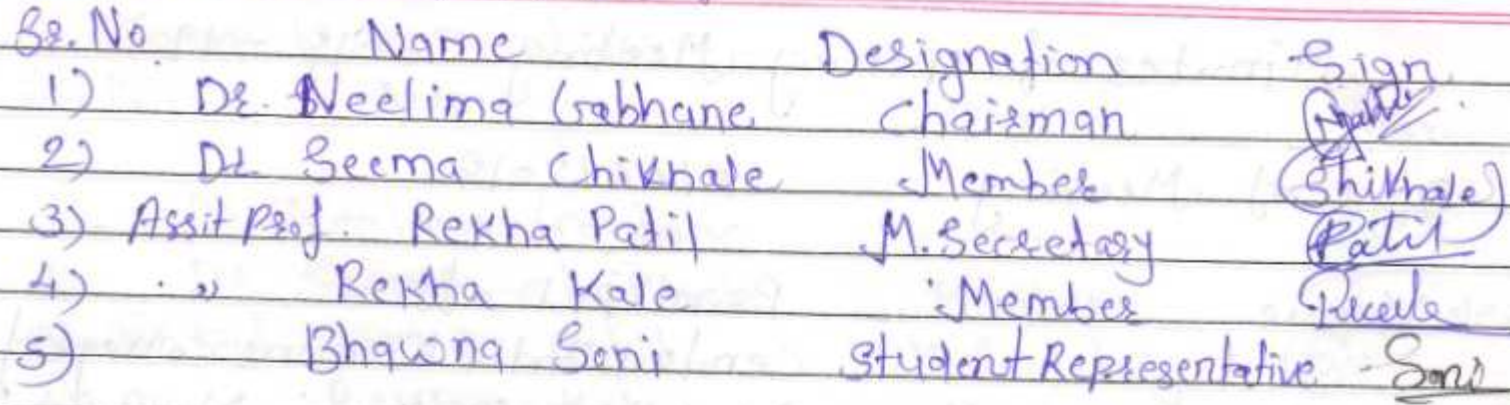 Sr. No. Name Designation Sign
1) Dr. Neelima Gabhane Chairman
2) Dr. Seema Chikhale Member Chikhale
3) Assit Prof. Rekha Patil M. Secretary Patil
4) " Rekha Kale Member
5) Bhawna Soni Student Representative Soni